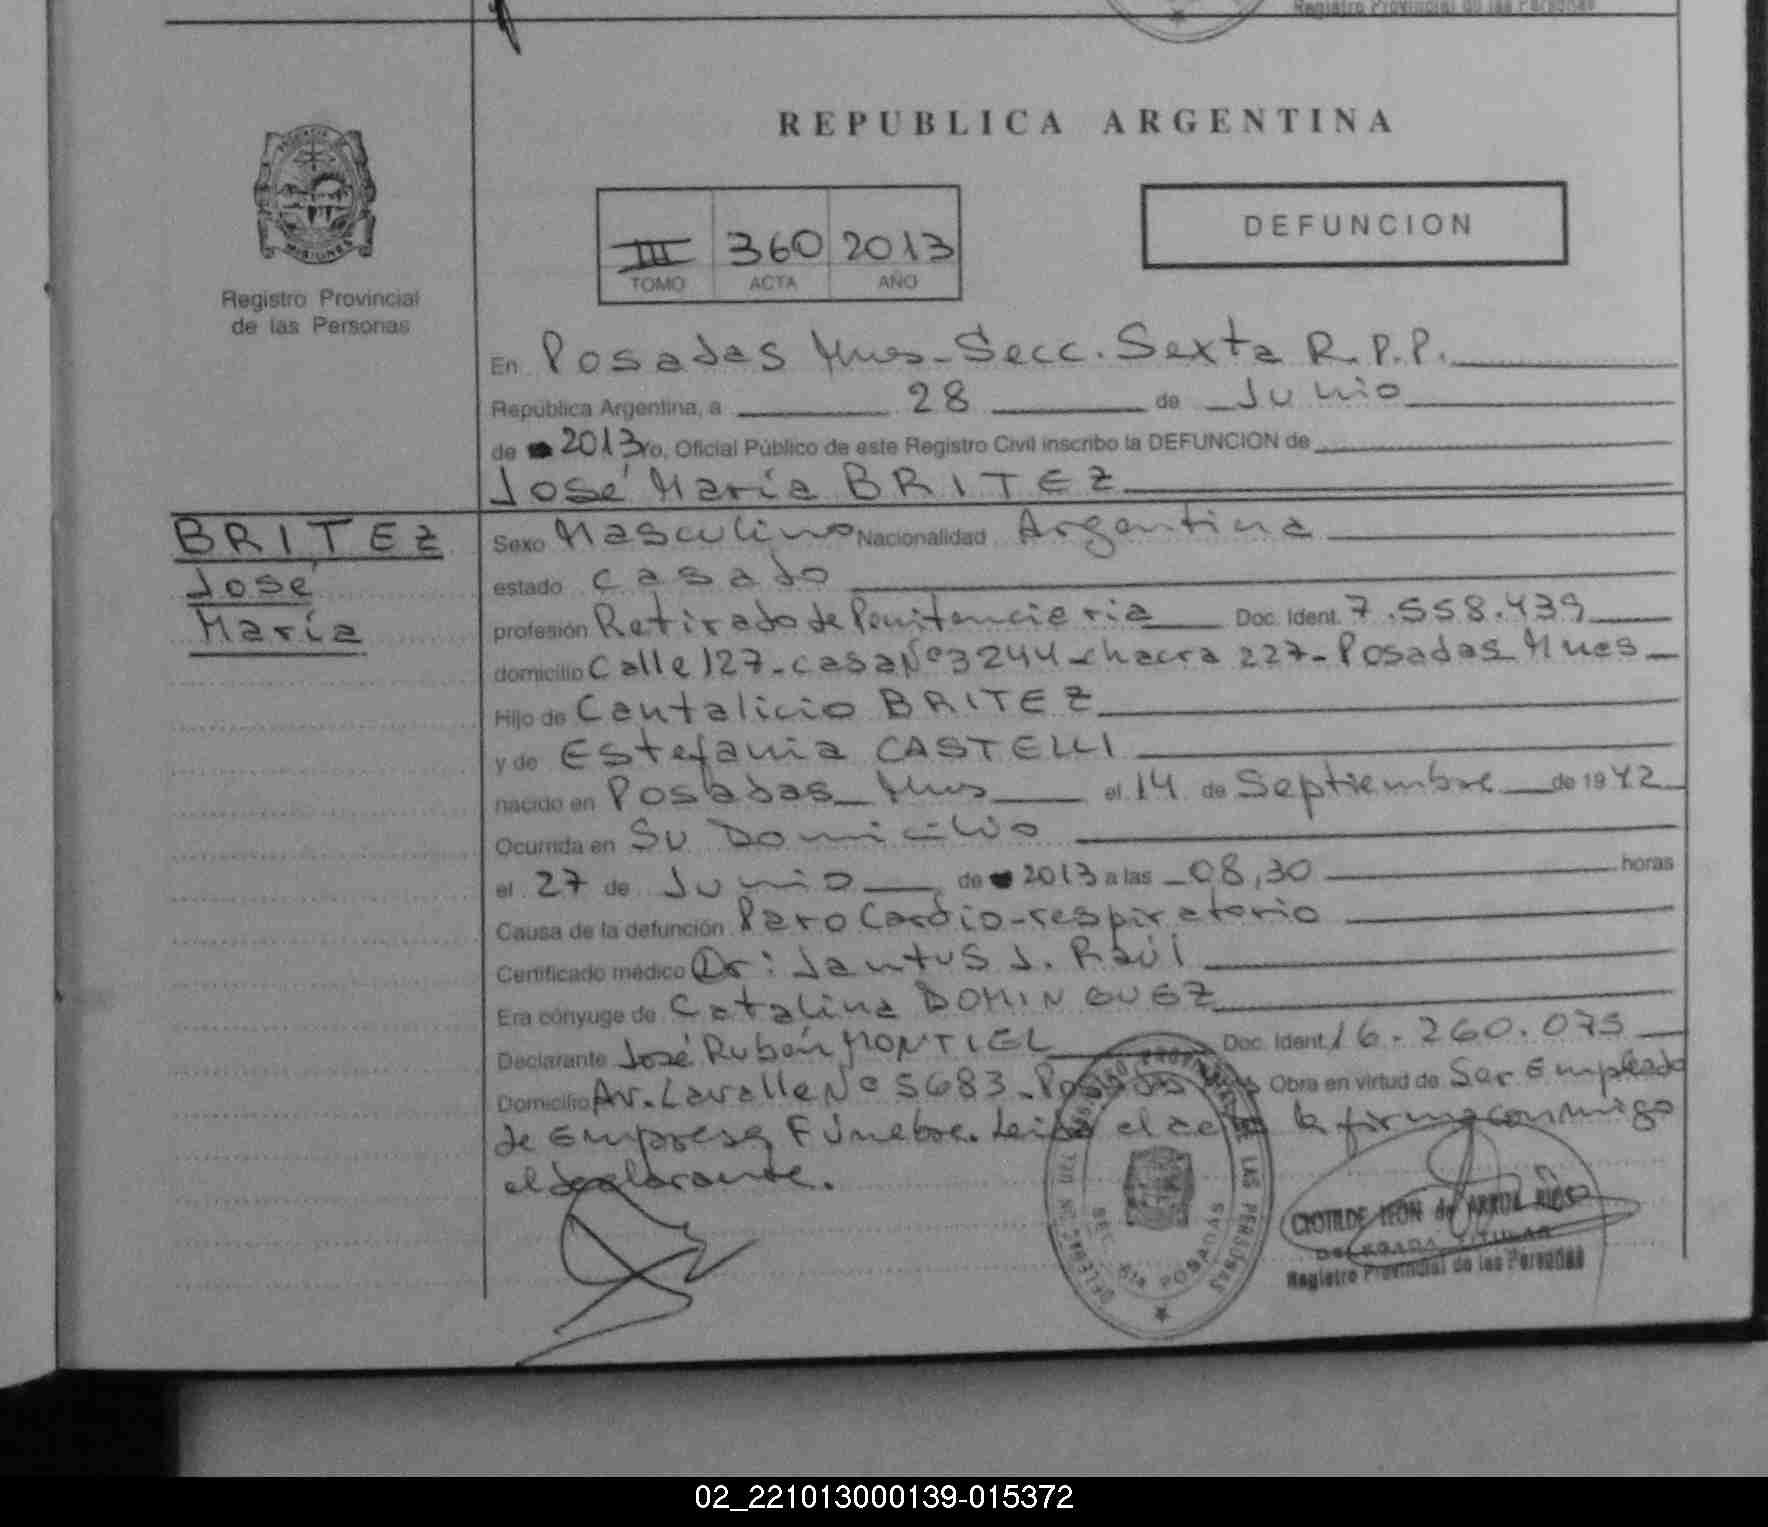 Registro Provincial de las Personas
REPUBLICA ARGENTINA
MISIONES
Registro Provincial
de las Personas
III 360 2013
TOMO ACTA AÑO
DEFUNCION
En Posadas Mnes-Secc. Sexta R.P.P.
República Argentina, a 28 de Junio
de 2013 Yo, Oficial Público de este Registro Civil inscribo la DEFUNCION de
José María BRITEZ
BRITEZ
José
María
Sexo Masculino Nacionalidad Argentina
estado casado
profesión Retirado de Penitenciería Doc. Ident. 7.558.439
domicilio Calle 127-casa Nº 3244-chacra 227-Posadas Mnes
Hijo de Cantalicio BRITEZ
y de Estefania CASTELLI
nacido en Posadas Mnes el 14 de Septiembre de 1942
Ocurrida en Su Domicilio
el 27 de Junio de 2013 a las 08,30 horas
Causa de la defunción Paro Cardio-respiratorio
Certificado médico Dr: Jantus J. Raúl
Era cónyuge de Catalina DOMINGUEZ
Declarante José Rubén MONTIEL Doc. Ident. 16.260.075
Domicilio Av. Lavalle Nº 5683-Posadas Mnes Obra en virtud de Ser Empleado
de Empresa Fúnebre. Leida el acta la firma conmigo
el declarante.
REGISTRO PROVINCIAL DE LAS PERSONAS
SEC. 6ta POSADAS
CLOTILDE LEON de ARRUA RIOS
DELEGADA TITULAR
Registro Provincial de las Personas
02_221013000139-015372